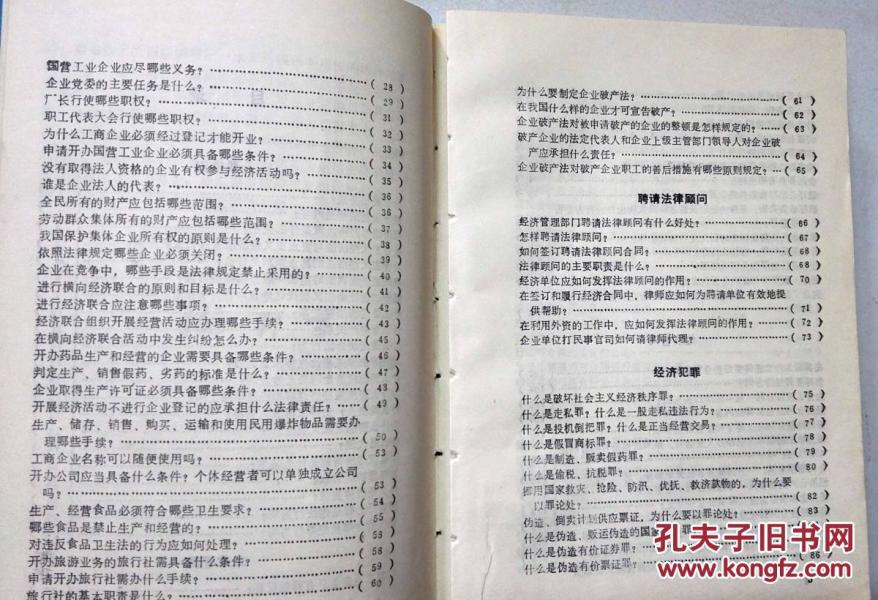 国营工业企业应尽哪些义务？……（28）
企业党委的主要任务是什么？……（29）
厂长行使哪些职权？……（31）
职工代表大会行使哪些职权？……（32）
为什么工商企业必须经过登记才能开业？……（33）
申请开办国营工业企业必须具备哪些条件？……（34）
没有取得法人资格的企业有权参与经济活动吗？……（35）
谁是企业法人的代表？……（36）
全民所有的财产应包括哪些范围？……（36）
劳动群众集体所有的财产应包括哪些范围？……（37）
我国保护集体企业所有权的原则是什么？……（38）
依照法律规定哪些企业必须关闭？……（39）
企业在竞争中，哪些手段是法律规定禁止采用的？……（40）
进行横向经济联合的原则和目标是什么？……（41）
进行经济联合应注意哪些事项？……（42）
经济联合组织开展经营活动应办理哪些手续？……（43）
在横向经济联合活动中发生纠纷怎么办？……（45）
开办药品生产和经营的企业需要具备哪些条件？……（46）
判定生产、销售假药、劣药的标准是什么？……（47）
企业取得生产许可证必须具备哪些条件？……（48）
开展经济活动不进行企业登记的应承担什么法律责任？……（49）
生产、储存、销售、购买、运输和使用民用爆炸物品需要办
理哪些手续？……（50）
工商企业名称可以随便使用吗？……（53）
开办公司应当具备什么条件？个休经营者可以单独成立公司
吗？……（53）
生产、经营食品必须符合哪些卫生要求？……（54）
哪些食品是禁止生产和经营的？……（55）
对违反食品卫生法的行为应如何处理？……（58）
开办旅游业务的旅行社需具备什么条件？……（59）
申请开办旅行社需办什么手续？……（60）
旅行社的基本职责是什么？
为什么要制定企业破产法？……（61）
在我国什么样的企业才可宣告破产？……（62）
企业破产法对被申请破产的企业的整顿是怎样规定的？……（63）
破产企业的法定代表人和企业上级主管部门领导人对企业破
产应承担什么责任？……（64）
企业破产法对破产企业职工的善后措施有哪些原则规定？…（65）
聘请法律顾问
经济管理部门聘请法律顾问有什么好处？……（66）
怎样聘请法律顾问？……（67）
如何签订聘请法律顾问合同？……（68）
法律顾问的主要职责是什么？……（68）
经济单位应如何发挥法律顾问的作用？……（70）
在签订和履行经济合同中，律师应如何为聘请单位有效地提
供帮助？……（71）
在利用外资的工作中，应如何发挥法律顾问的作用？……（72）
企业单位打民事官司如何请律师代理？……（73）
经济犯罪
什么是破坏社会主义经济秩序罪？……（75）
什么是走私罪？什么是一般走私违法行为？……（76）
什么是投机倒把罪？什么是正当经营交易？……（77）
什么是假冒商标罪？……（78）
什么是制造、贩卖假药罪？……（79）
什么是偷税、抗税罪？……（80）
挪用国家救灾、抢险、防汛、优抚、救济款物的，为什么要
以罪论处？……（82）
伪造、倒卖计划供应票证，为什么要以罪论处？……（83）
什么是伪造、贩运伪造的国家
什么是伪造有价证券罪？
什么是伪造有价票证罪？……（86）
孔夫子旧书网
www.kongfz.com